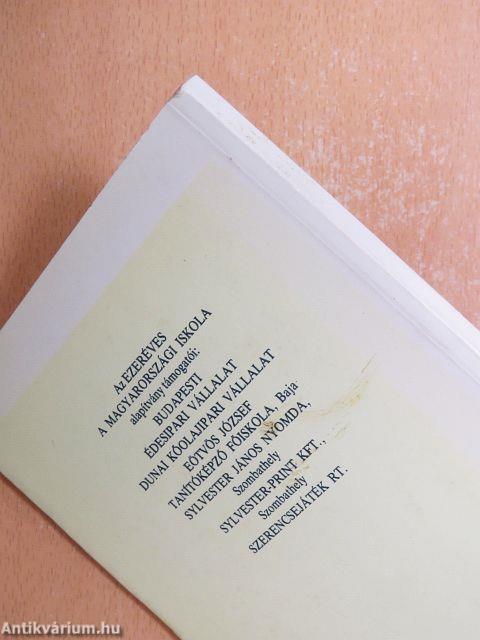 Az EZERÉVES
A MAGYARORSZÁGI ISKOLA
alapítvány támogatói:
BUDAPESTI
ÉDESIPARI VÁLLALAT
DUNAI KŐOLAJIPARI VÁLLALAT
EÖTVÖS JÓZSEF
TANÍTÓKÉPZŐ FŐISKOLA, Baja
SYLVESTER JÁNOS NYOMDA,
Szombathely
SYLVESTER-PRINT KFT.,
Szombathely
SZERENCSEJÁTÉK RT.
Antikvárium.hu